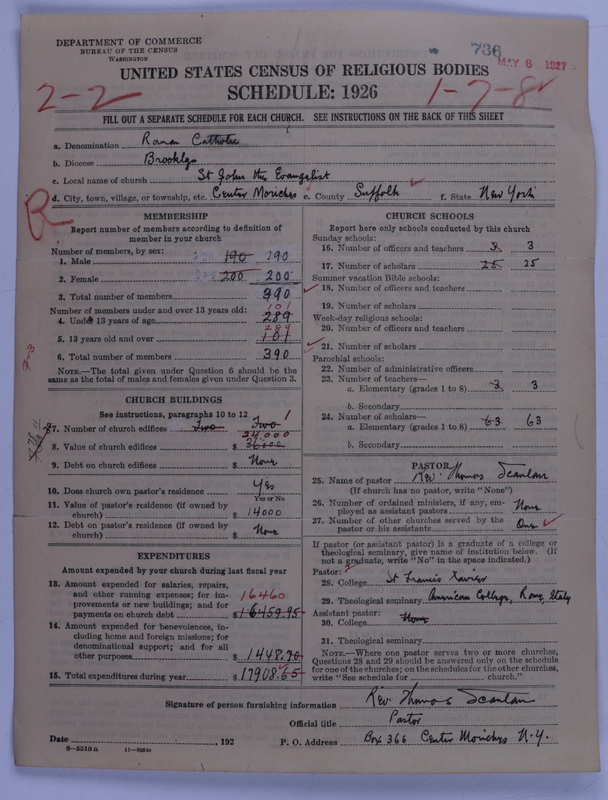 DEPARTMENT OF COMMERCE
BUREAU OF THE CENSUS
WASHINGTON
736
MAY 8 1927
UNITED STATES CENSUS OF RELIGIOUS BODIES
SCHEDULE: 1926
2-2
1-7-8
FILL OUT A SEPARATE SCHEDULE FOR EACH CHURCH. SEE INSTRUCTIONS ON THE BACK OF THIS SHEET
a. Denomination Roman Catholic
b. Diocese Brooklyn
c. Local name of church St John the Evangelist
d. City, town, village, or township, etc. Center Moriches e. County Suffolk f. State New York
R
MEMBERSHIP
Report number of members according to definition of
member in your church
Number of members, by sex:
1. Male 190 190
2. Female 200 200
3. Total number of members 390
Number of members under and over 13 years old:
101
4. Under 13 years of age 289
289
5. 13 years old and over 101
6. Total number of members 390
NOTE.—The total given under Question 6 should be
same as the total of males and females given under Question 3.
CHURCH BUILDINGS
See instructions, paragraphs 10 to 12
7. Number of church edifices Two Two 1
34,000
8. Value of church edifices $ 36000
9. Debt on church edifices $ None
10. Does church own pastor's residence Yes
Yes or No
11. Value of pastor's residence (if owned by
church) $ 14000
12. Debt on pastor's residence (if owned by
church) $ None
EXPENDITURES
Amount expended by your church during last fiscal year
13. Amount expended for salaries, repairs,
and other running expenses; for im-
provements or new buildings; and for
payments on church debt $ 16459.95
16460
14. Amount expended for benevolences, in-
cluding home and foreign missions; for
denominational support; and for all
other purposes $ 1448.70
15. Total expenditures during year $ 17908.65
CHURCH SCHOOLS
Report here only schools conducted by this church
Sunday schools:
16. Number of officers and teachers 3 3
17. Number of scholars 25 25
Summer vacation Bible schools:
18. Number of officers and teachers
19. Number of scholars
Week-day religious schools:
20. Number of officers and teachers
21. Number of scholars
Parochial schools:
22. Number of administrative officers
23. Number of teachers—
a. Elementary (grades 1 to 8) 3 3
b. Secondary
24. Number of scholars—
a. Elementary (grades 1 to 8) 63 63
b. Secondary
PASTOR
25. Name of pastor Rev. Thomas Scanlan
(If church has no pastor, write "None")
26. Number of ordained ministers, if any, em-
ployed as assistant pastors None
27. Number of other churches served by the
pastor or his assistants One
If pastor (or assistant pastor) is a graduate of a college or
theological seminary, give name of institution below. (If
not a graduate, write "No" in the space indicated.)
Pastor:
28. College St Francis Xavier
29. Theological seminary American College, Rome, Italy
Assistant pastor:
30. College None
31. Theological seminary
NOTE.—Where one pastor serves two or more churches,
Questions 28 and 29 should be answered only on the schedule
for one of the churches; on the schedules for the other churches,
write "See schedule for church."
Signature of person furnishing information Rev. Thomas Scanlan
Official title Pastor
Date , 192 P. O. Address Box 366 Center Moriches N.Y.
8-5518a